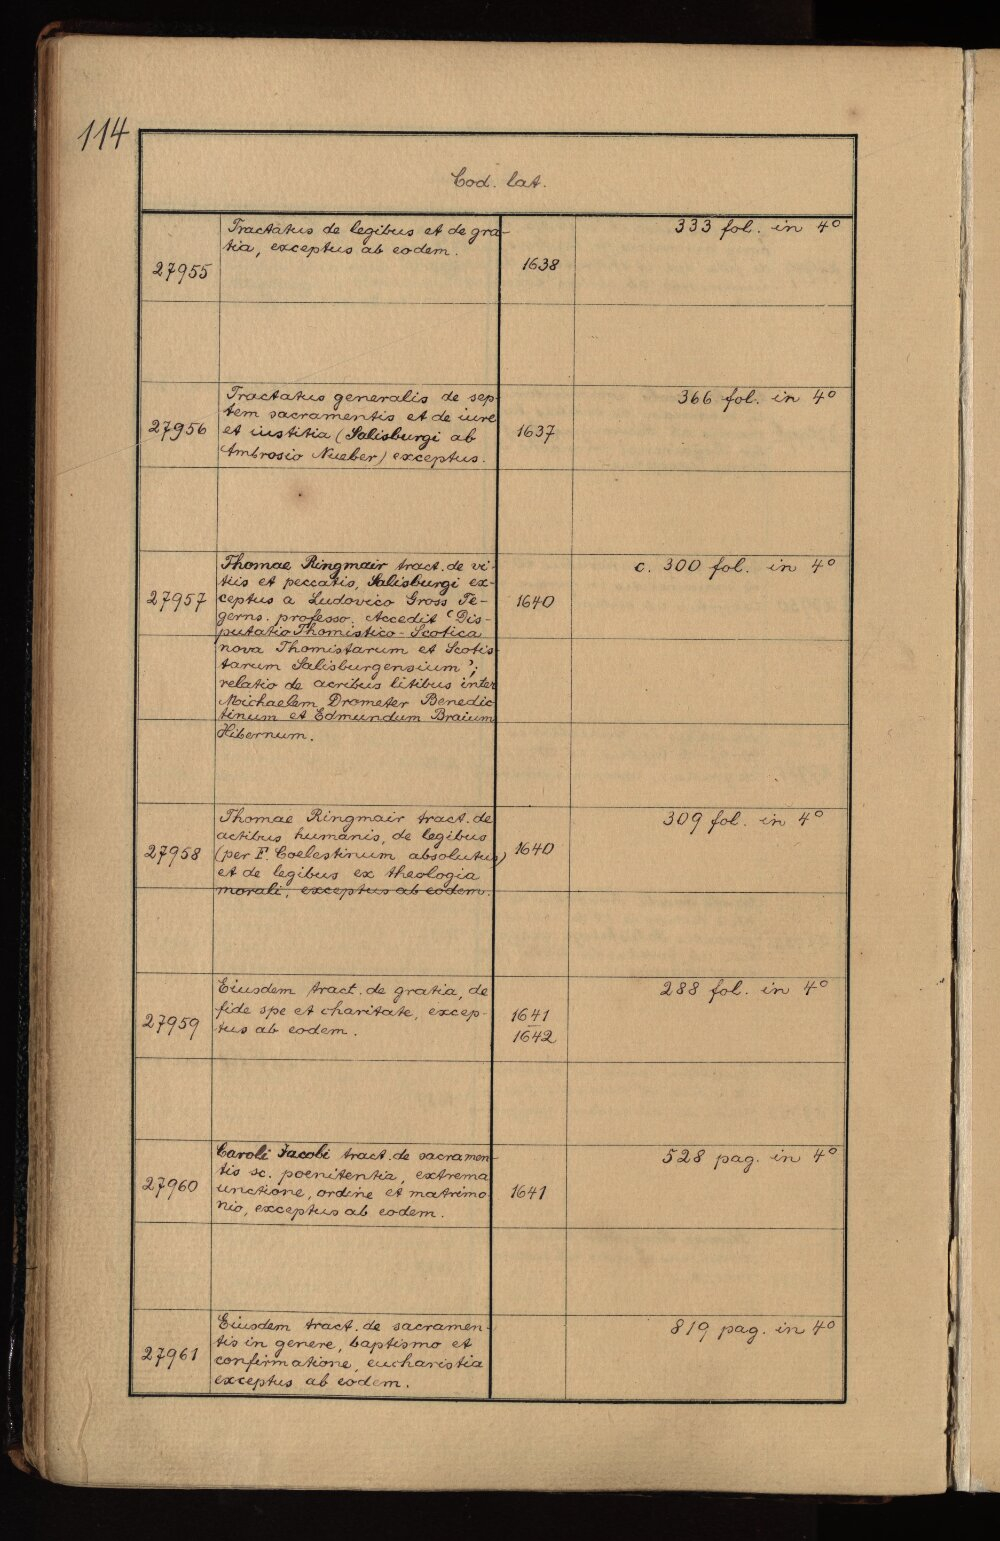 114
Cod. lat.
27955
Tractatus de legibus et de gra-
tia, exceptus ab eodem.
1638
333 fol. in 4°
27956
Tractatus generalis de sep-
tem sacramentis et de iure
et iustitia (Salisburgi ab
Ambrosio Nueber) exceptus.
1637
366 fol. in 4°
27957
Thomae Ringmair tract. de vi-
tiis et peccatis, Salisburgi ex-
ceptus a Ludovico Gross Te-
gerns. professo. Accedit 'Dis-
putatio Thomistico-Scotica
nova Thomistarum et Scotis
tarum Salisburgensium';
relatio de acribus litibus inter
Michaelem Drometer Benedic
tinum et Edmundum Braium
Hibernum.
1640
c. 300 fol. in 4°
27958
Thomae Ringmair tract. de
actibus humanis, de legibus
(per F. Coelestinum absolutus)
et de legibus ex theologia
morali, exceptus ab eodem.
1640
309 fol. in 4°
27959
Eiusdem tract. de gratia, de
fide spe et charitate, excep-
tus ab eodem.
1641
1642
288 fol. in 4°
27960
Caroli Jacobi tract. de sacramen-
tis sc. poenitentia, extrema
unctione, ordine et matrimo-
nio, exceptus ab eodem.
1641
528 pag. in 4°
27961
Eiusdem tract. de sacramen-
tis in genere, baptismo et
confirmatione, eucharistia
exceptus ab eodem.
819 pag. in 4°